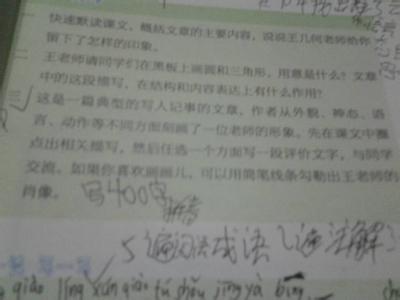 快速默读课文，概括文章的主要内容，说说王几何老师给你
留下了怎样的印象。
王老师请同学们在黑板上画圆和三角形，用意是什么？文章
中的这段描写，在结构和内容表达上有什么作用？
这是一篇典型的写人记事的文章，作者从外貌、神态、语
言、动作等不同方面刻画了一位老师的形象。先在课文中圈
点出相关描写，然后任选一个方面写一段评价文字，与同学
交流。如果你喜欢画画儿，可以用简笔线条勾勒出王老师的
肖像。 写400字
5遍词语 成语1遍 注解
写一写
qiáo líng xùn qiào tú shǒu jīng yà bīng